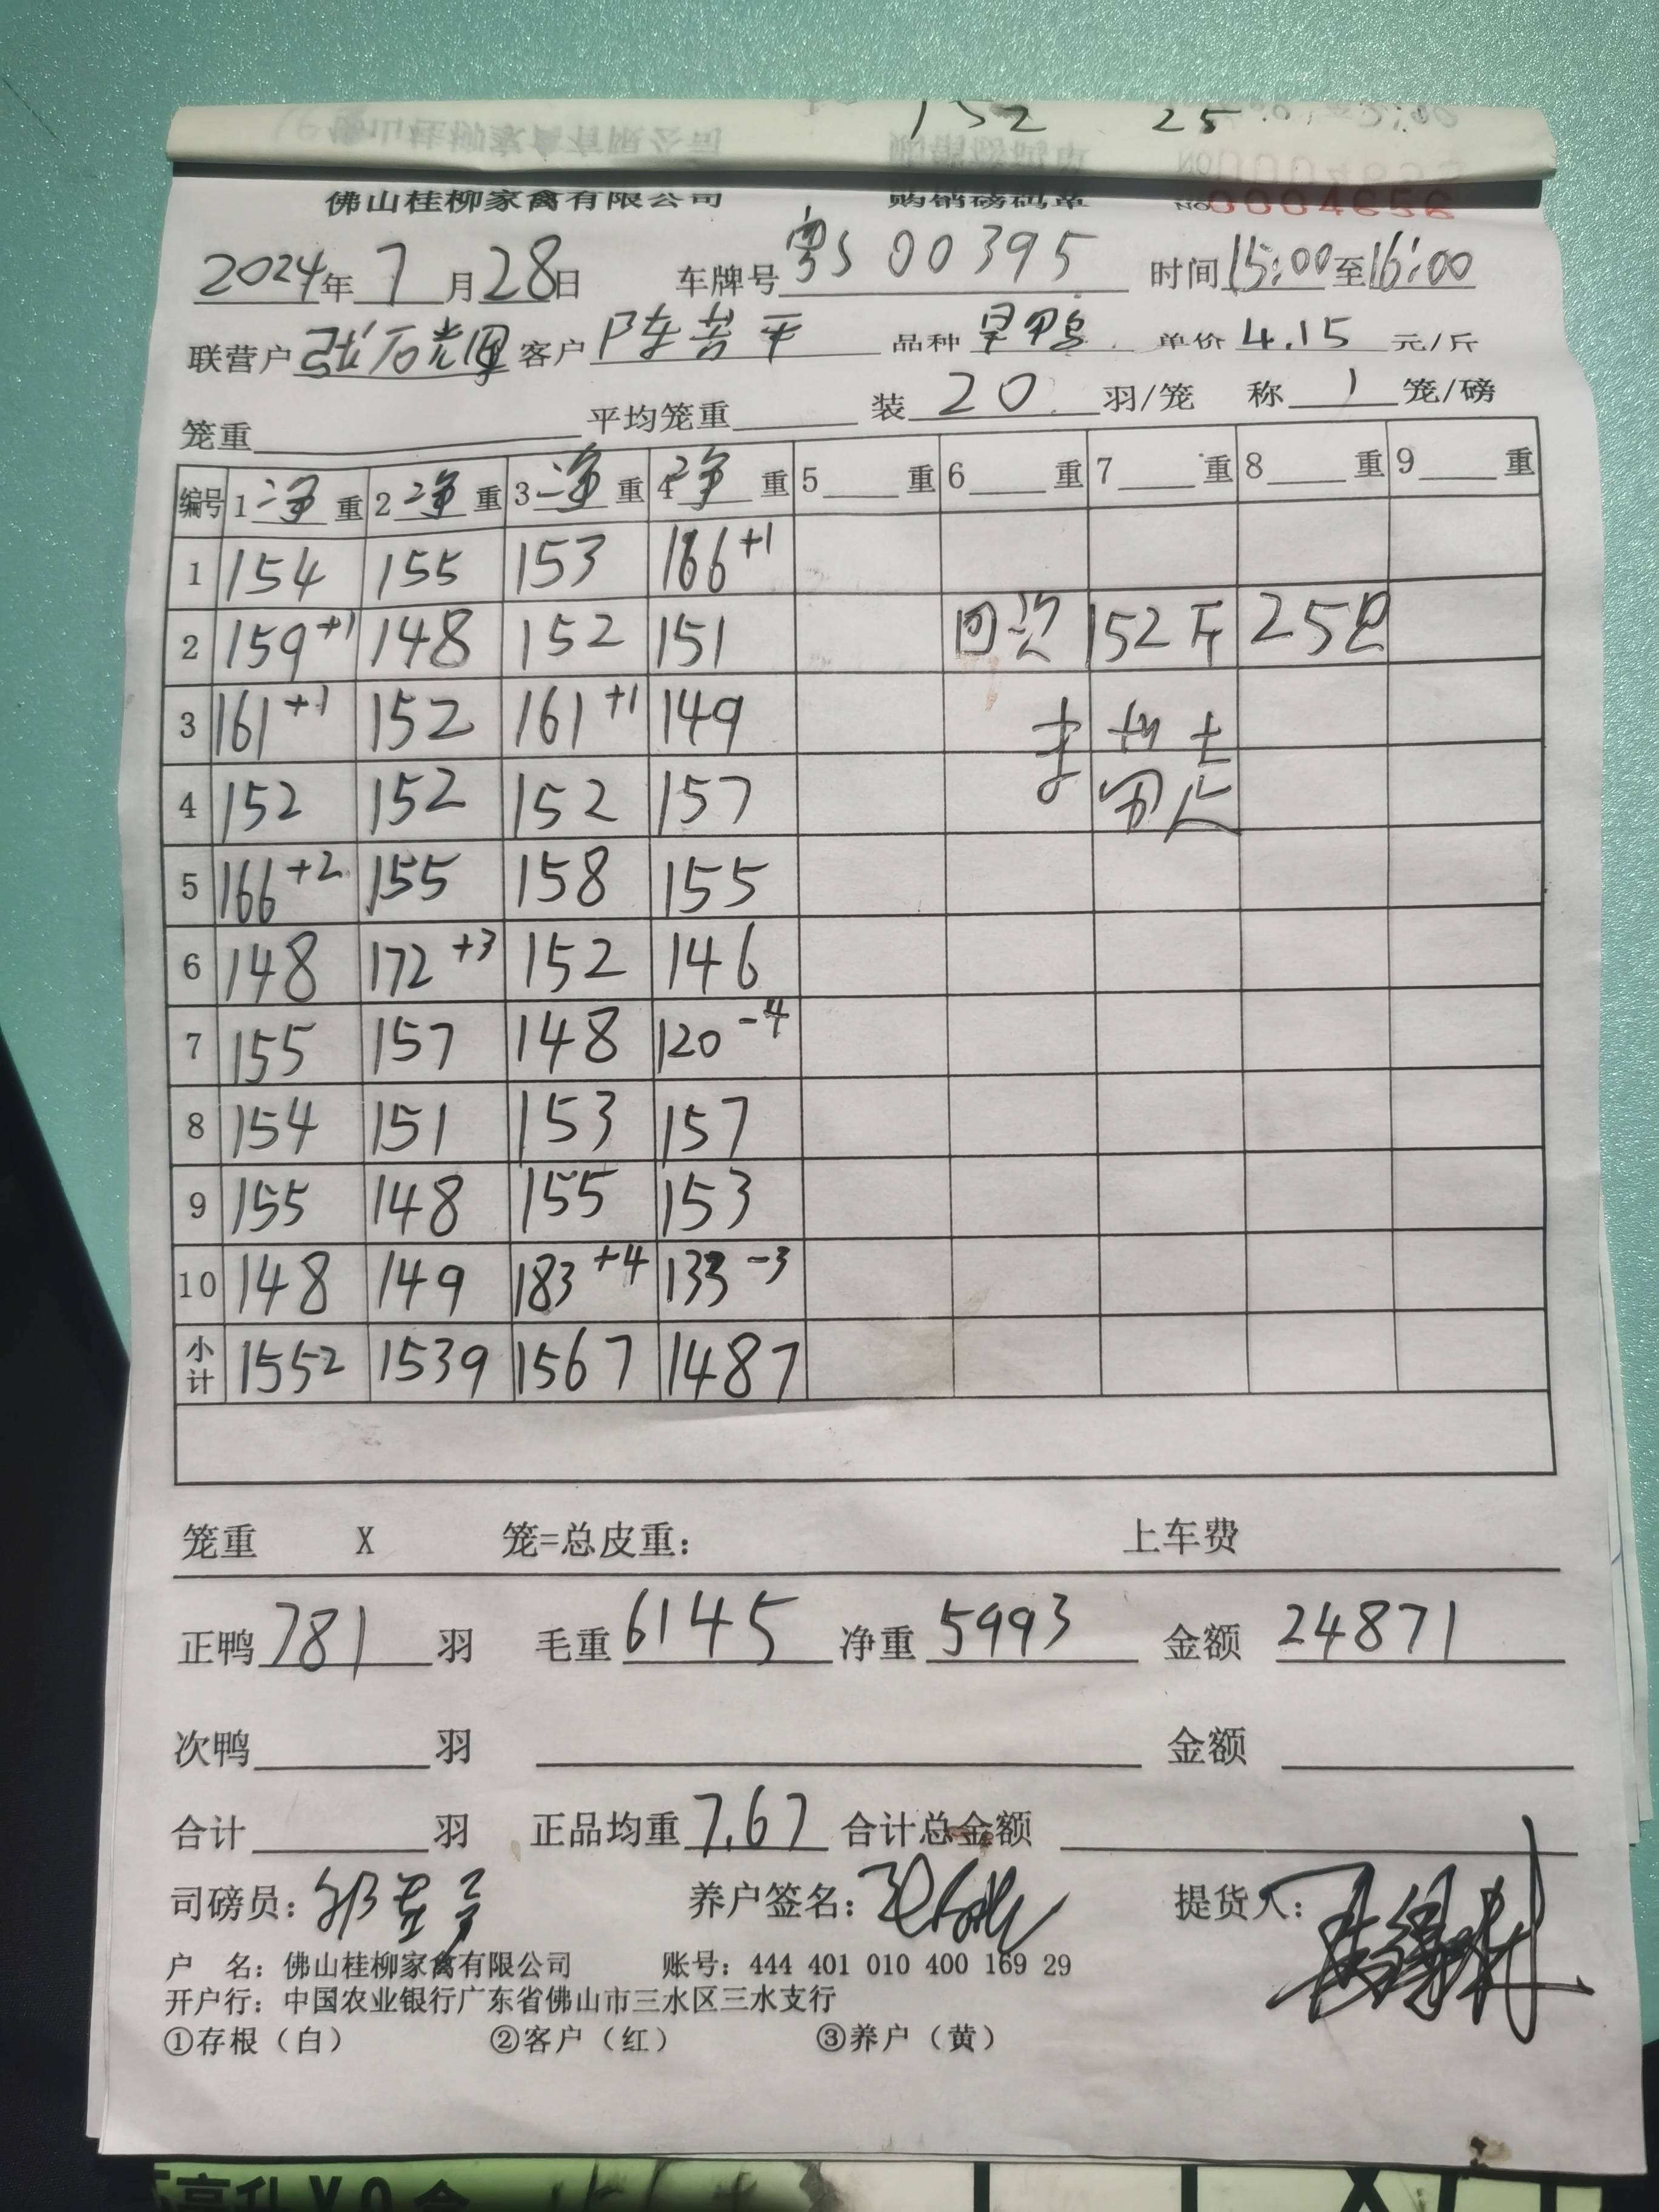 152 25
佛山桂柳家禽有限公司 购销磅码单 NO0004656
2024年7月28日 车牌号粤S00395 时间15:00至16:00
联营户 客户 品种旱鸭 单价4.15元/斤
笼重 平均笼重 装20羽/笼 称1笼/磅
编号 1净重 2净重 3净重 4净重 5重 6重 7重 8重 9重
1 154 155 153 166+1
2 159+1 148 152 151 回次 152斤 25只
3 161+1 152 161+1 149
4 152 152 152 157
5 166+2 155 158 155
6 148 172+3 152 146
7 155 157 148 120-4
8 154 151 153 157
9 155 148 155 153
10 148 149 183+4 133-3
小计 1552 1539 1567 1487
笼重 X 笼=总皮重: 上车费
正鸭781羽 毛重6145 净重5993 金额24871
次鸭 羽 金额
合计 羽 正品均重7.67 合计总金额
司磅员: 养户签名: 提货人:
户 名: 佛山桂柳家禽有限公司 账号: 444 401 010 400 169 29
开户行: 中国农业银行广东省佛山市三水区三水支行
①存根（白） ②客户（红） ③养户（黄）